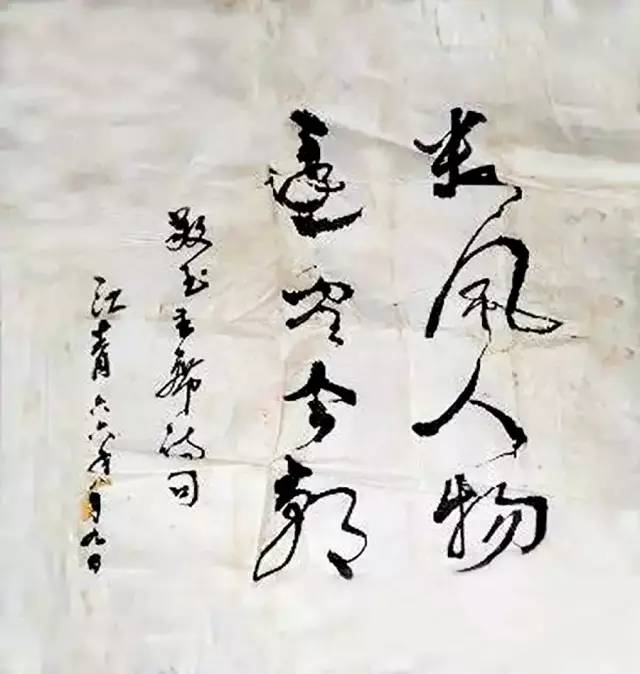 数風人物
還看今朝
敬书主席诗句
江青六六年月九日